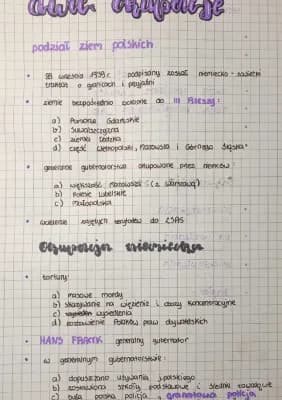 dwie okupacje
podział ziem polskich
28 września 1939 r. podpisany został niemiecko-sowiecki
traktat o granicach i przyjaźni
ziemie bezpośrednio wcielone do III Rzeszy:
a) Pomorze Gdańskie
b) Suwalszczyzna
c) ziemia łódzka
d) część Wielkopolski, Mazowsza i Górnego Śląska
generalne gubernatorstwo okupowane przez niemców:
a) większość Mazowsza (z Warszawą)
b) Polesie Lubelskie
c) Małopolska
wcielenie zajętych terytoriów do ZSRS
Okupacja niemiecka
a) masowe mordy
b) skazywanie na więzienie i obozy koncentracyjne
c) wysiedlenia
d) pozbawienie Polaków praw obywatelskich
HANS FRANK generalny gubernator
w generalnym gubernatorstwie:
a) dopuszczono używanie j.polskiego
b) zostawiono szkoły podstawowe i średnie zawodowe
c) była polska policja, granatowa policja